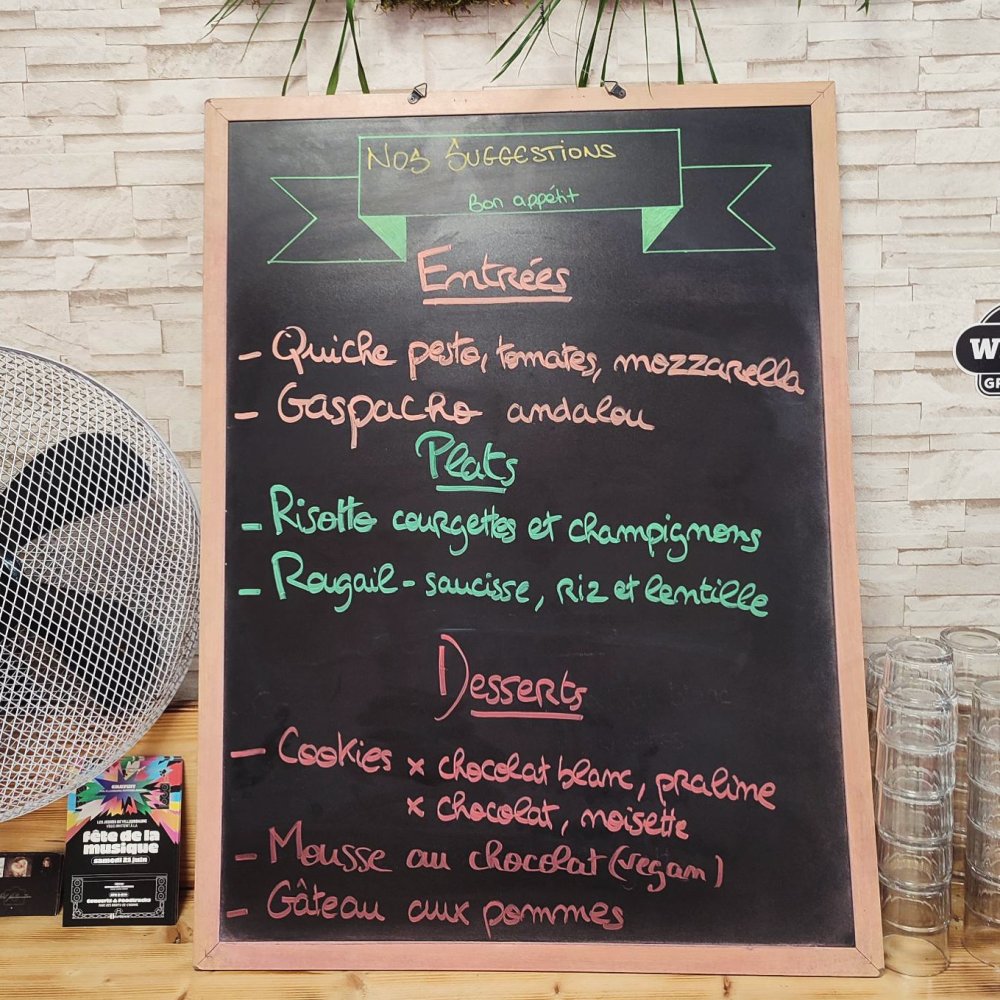 Nos Suggestions
Bon appétit
Entrées
- Quiche pesto, tomates, mozzarella
- Gaspacho andalou
Plats
- Risotto courgettes et champignons
- Rougail - saucisse, riz et lentille
Desserts
- Cookies x chocolat blanc, praline
x chocolat, noisette
- Mousse au chocolat (vegan)
- Gâteau aux pommes
GRATUIT
fête de la
musique
samedi 21 juin
Concerts & Foodtrucks